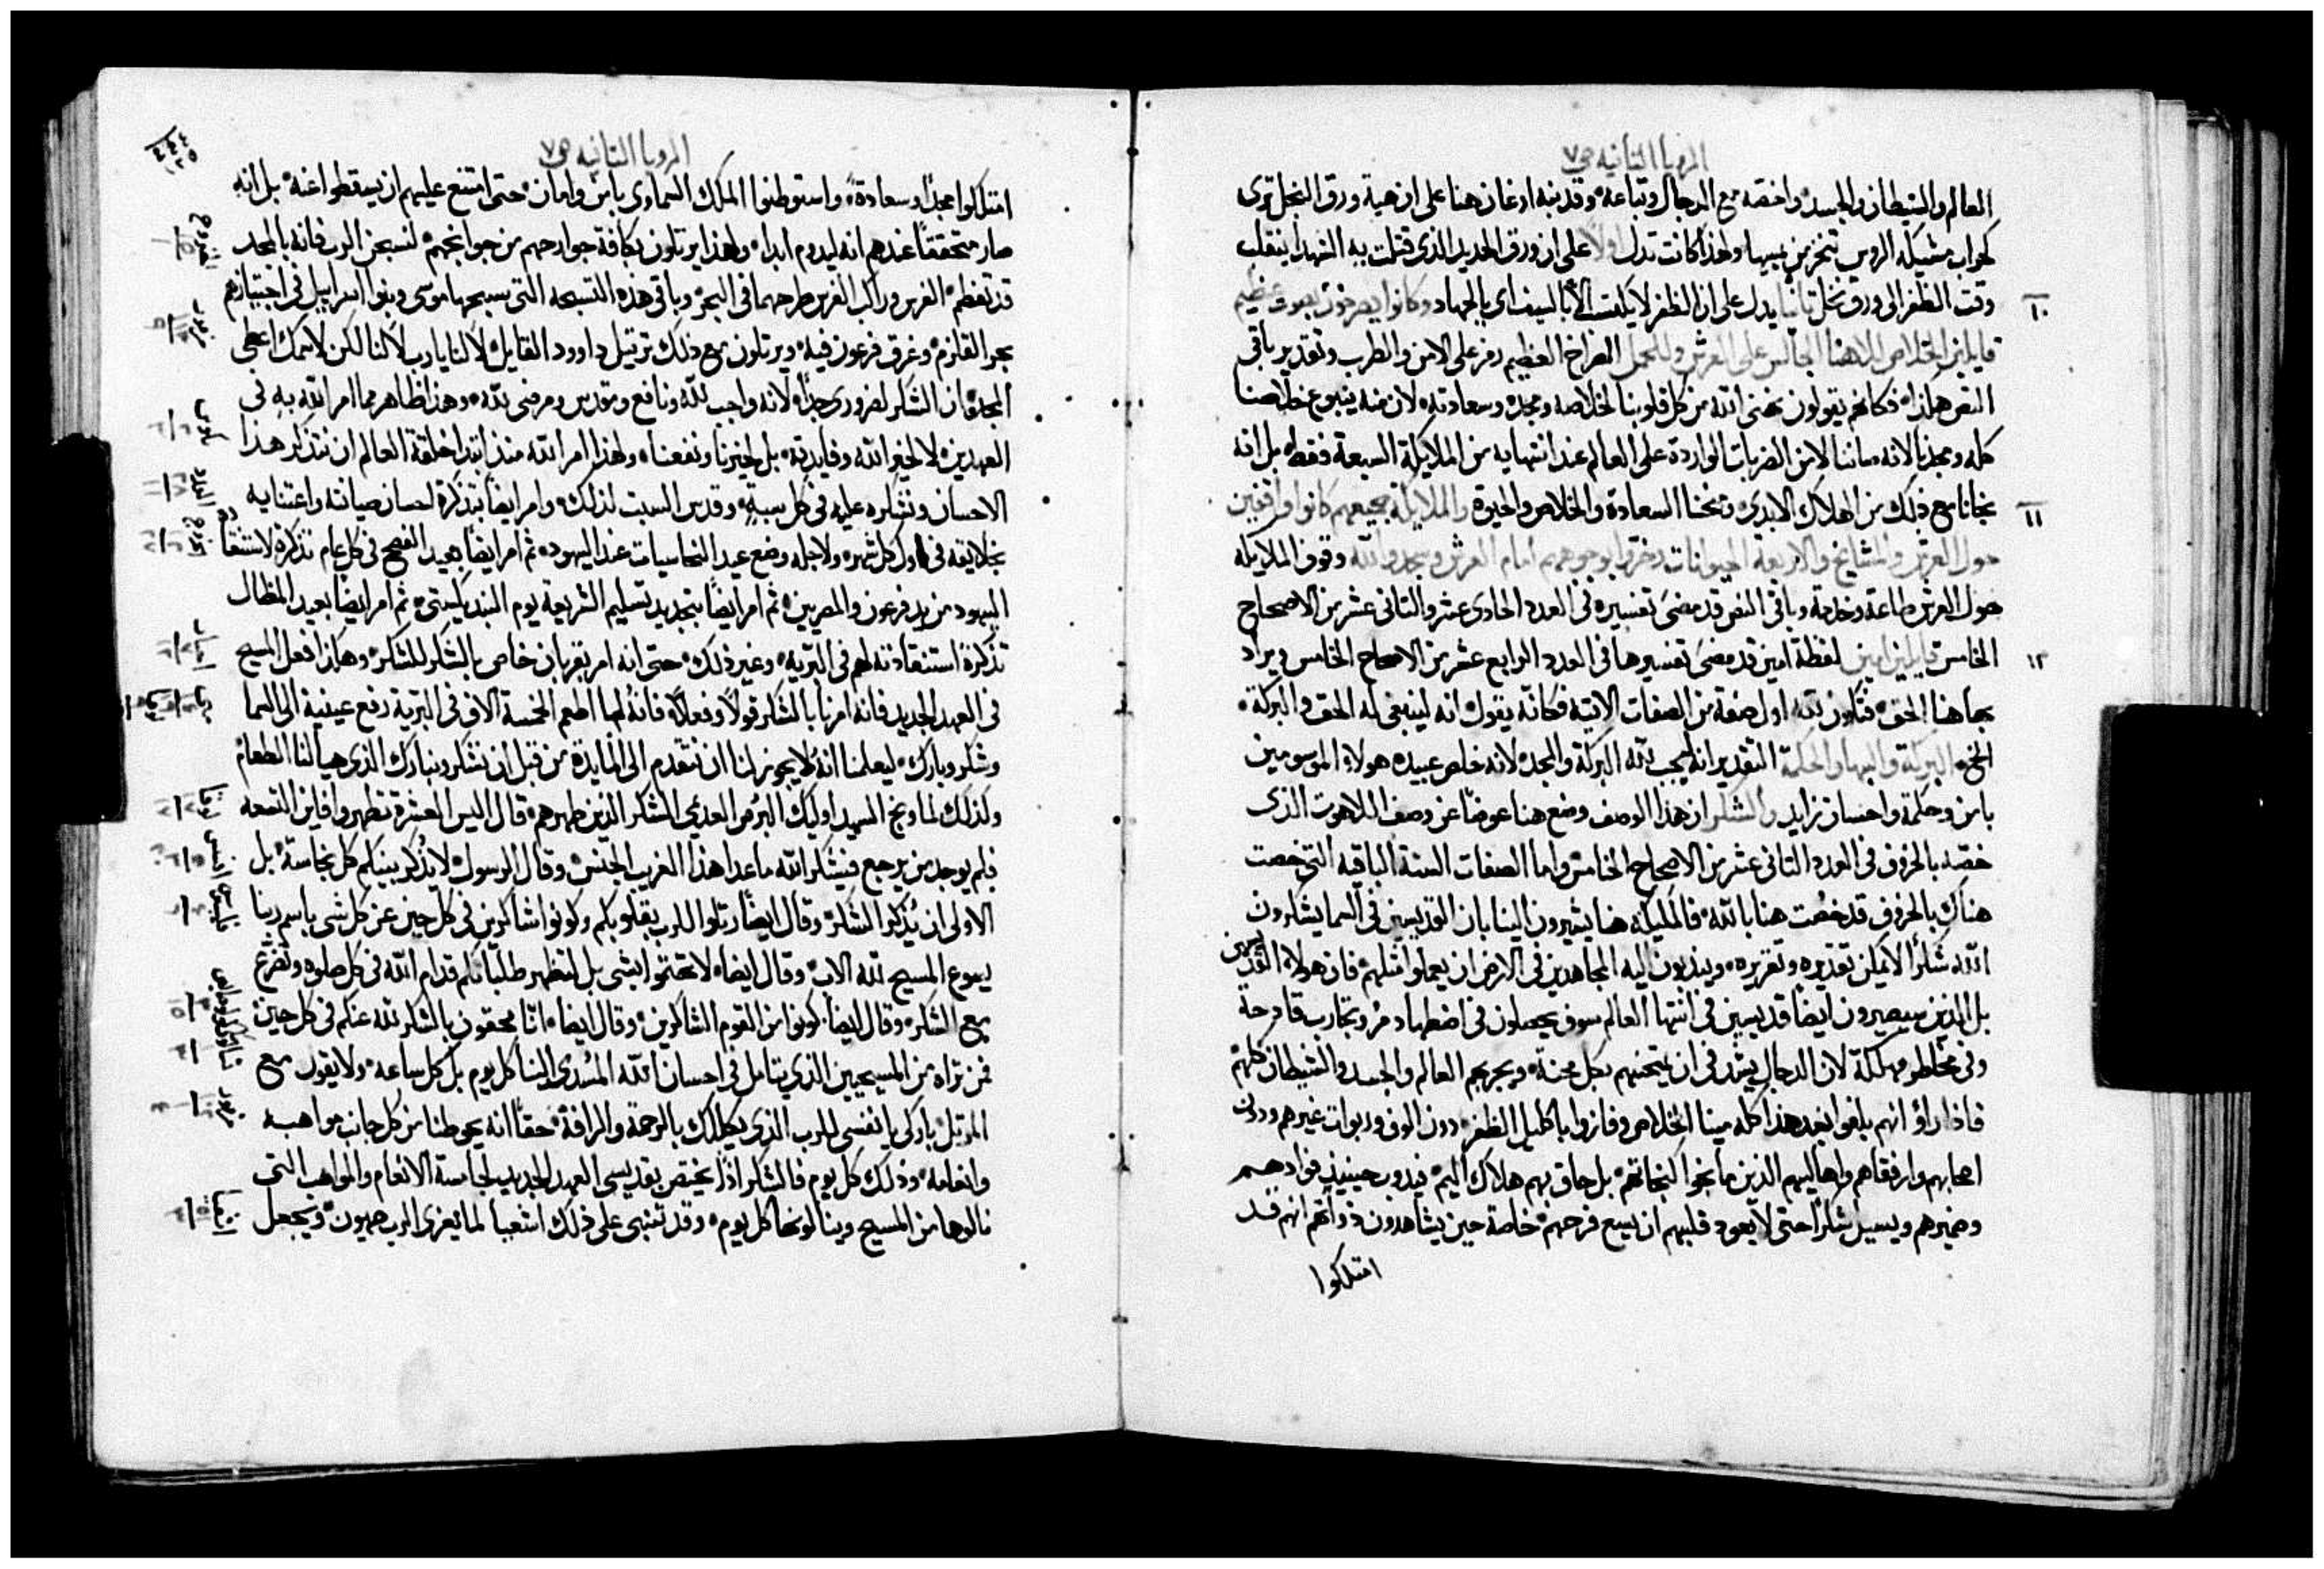 الرويا الثانيه ص٧
العالم والشيطان والجسد واخصه مع الدجال وتباعه وقد نبه ادغان هنا على ان هية ورق النخل ترى
كحراب مشيكله الروس تنخز من يمسها ولهذا كانت تدل اولًا على ان ورق الحديد الذي قتلت به الشهدا ينقلب
وقت الظفر الى ورق نخل ثانيًا يدل على ان الظفر لا يكتسب الا بالسيف اي بالجهاد وكانوا يصرخون بصوت عظيم
١٠
قايلين الخلاص لالهنا الجالس على العرش وللحمل الصراخ العظيم رمز على الامن والطرب وتقدير باقي
النص هكذا فكانهم يقولون نهني الله من كل قلوبنا لخلاصه ومجده وسعادته لان منه ينبوع خلاصنا
كله ومجدنا لانه صاننا لا من الضربات الواردة على العالم عند انتهايه من الملايكة السبعة فقط بل انه
نجانا مع ذلك من الهلاك الابدي ومنحنا السعادة والخلاص والحيرة والملايكة جميعهم كانوا واقفين
١١
حول العرش والمشايخ والاربعة الحيوانات وخروا بوجوههم امام العرش وسجدوا لله وقوف الملايكه
حول العرش طاعة وخدمة وباقي النص قد مضى تفسيره في العدد الحادي عشر والثاني عشر من الاصحاح
الخامس قايلين امين لفظة امين قد مضى تفسيرها في العدد الرابع عشر من الاصحاح الخامس ويراد
١٢
بها هنا الحق فتكون لله اول صفة من الصفات الاتية فكانه يقول انه لينبغي له الحق والبركة
الخ البركة والبها والحكمة التقدير انه ليجب لله البركة والمجد لانه خلص عبيده هولاء الموسومين
بامن وحكمة واحسان زايد والشكر ان هذا الوصف وضع هنا عوضًا عن وصف اللاهوت الذي
خصه بالخروف في العدد الثاني عشر من الاصحاح الخامس واما الصفات الستة الباقيه التي خصت
هناك بالخروف قد خصت هنا بالله فالمليكه هنا يشيرون الينا بان القديسين في السما يشكرون
الله شكرًا لا يمكن تقديره وتقريره ويندبون اليه المجاهدين في الارض ان يعملوا مثلهم فان هولاء القديسين
بل الذين سيصيرون ايضًا قديسين في انتها العالم سوف يحصلون في اضطهاد مر وتجارب فادحة
وفي مخاطر مهلكة لان الدجال يشد في ان يمتحنهم بكل محنة ويجربهم العالم والجسد والشيطان كلهم
فاذا راؤ انهم بلغوا بعد هذا كله مينا الخلاص وفازوا باكليل الظفر دون الوف وربوات غيرهم ودون
اصحابهم وارفقاهم واهاليهم الذين ما نجوا كنجاتهم بل حاق بهم هلاك اليم فيدوب حينيذ فوادهم
وضميرهم ويسيل شكرًا حتى لا يعود قلبهم ان يسع فرحهم خاصة حين يشاهدون ذواتهم انهم قد
امتلكوا
الرويا الثانيه ص٧
امتلكوا مجدًا وسعادة واستوطنوا الملك السماوي بامن وامان حتى امتنع عليهم ان يسقطوا عنه بل انه
صار متحققًا عندهم انه ليدوم ابدًا ولهذا يرتلون بكافة جوارحهم من جوانحهم لنسبحن الرب فانه بالمجد
قد تعظم الفرس وراكب الفرس طرحهما في البحر وباقي هذه التسبحه التي يسبحها موسى وبنوا اسراييل في اجتيازهم
بحر القلزم وغرق فرعون فيه ويرتلون مع ذلك ترتيل داوود القايل لا لنا يا رب لا لنا لكن لاسمك اعطي
المجد فان الشكر لضروري جدًا لانه واجب لله ونافع ومقدس ومرضي لله وهذا ظاهر مما امر الله به في
العهدين لا لخير الله وفايدته بل لخيرنا ونفعنا ولهذا امر الله منذ ابتدا خلقة العالم ان نتذكر هذا
الاحسان ونشكره عليه في كل سبة وقدس السبت لذلك وامر ايضًا بتذكرة احسان صيانته واعتنايه
بخلايقه في اول كل شهر ولاجله وضع عيد عند اليهود ثم امر ايضًا بعيد الفصح في كل عام تذكرة لاستنقاذ
اليهود من يد فرعون والمصريين ثم امر ايضًا بتجديد تسليم الشريعة يوم البنديكستي ثم امر ايضًا بعيد المظال
تذكرة استنقاذته لهم في البرية وغير ذلك حتى انه امر بقربان خاص بالشكر للشكر وهكذا فعل المسيح
في العهد الجديد فانه امرنا بالشكر قولًا وفعلًا فانه لما اطعم الخمسة الاف في البرية رفع عينيه الى السما
وشكر وبارك ليعلمنا انه لا يجوز لنا ان نتقدم الى المايدة من قبل ان نشكر ونبارك الذي هيا لنا الطعام
ولذلك لما وبخ السيد اوليك البرص العديمي الشكر الذين طهرهم قال اليس العشرة تطهروا فاين التسعه
فلم يوجد من يرجع فيشكر الله ما عدا هذا الغريب الجنس وقال الرسول لا يذكر بينكم كل نجاسة بل
الاولى ان يذكر الشكر وقال ايضًا رتلوا للرب بقلوبكم وكونوا شاكرين في كل حين عن كل شي باسم ربنا
يسوع المسيح لله الاب وقال ايضًا لا تهتموا بشي بل لتظهر طلباتكم قدام الله في كل صلوه وتضرع
مع الشكر وقال ايضًا كونوا من القوم الشاكرين وقال ايضًا انا محقوق بالشكر لله عنكم في كل حين
فمن تراه من المسيحيين الذي يتامل في احسان الله المسدى الينا كل يوم بل كل ساعه ولا يقول مع
المرتل باركي يا نفسي للرب الذي يكللك بالرحمة والرافة حقًا انه يحوطنا من كل جانب مواهبه
وانعامه وذلك كل يوم فالشكر اذًا يختص بقديسي العهد الجديد لجاسة الانعام والمواهب التي
نالوها من المسيح وينالونها كل يوم وقد تنبى على ذلك اشعيا لما يعزي الرب صهيون ويجعل